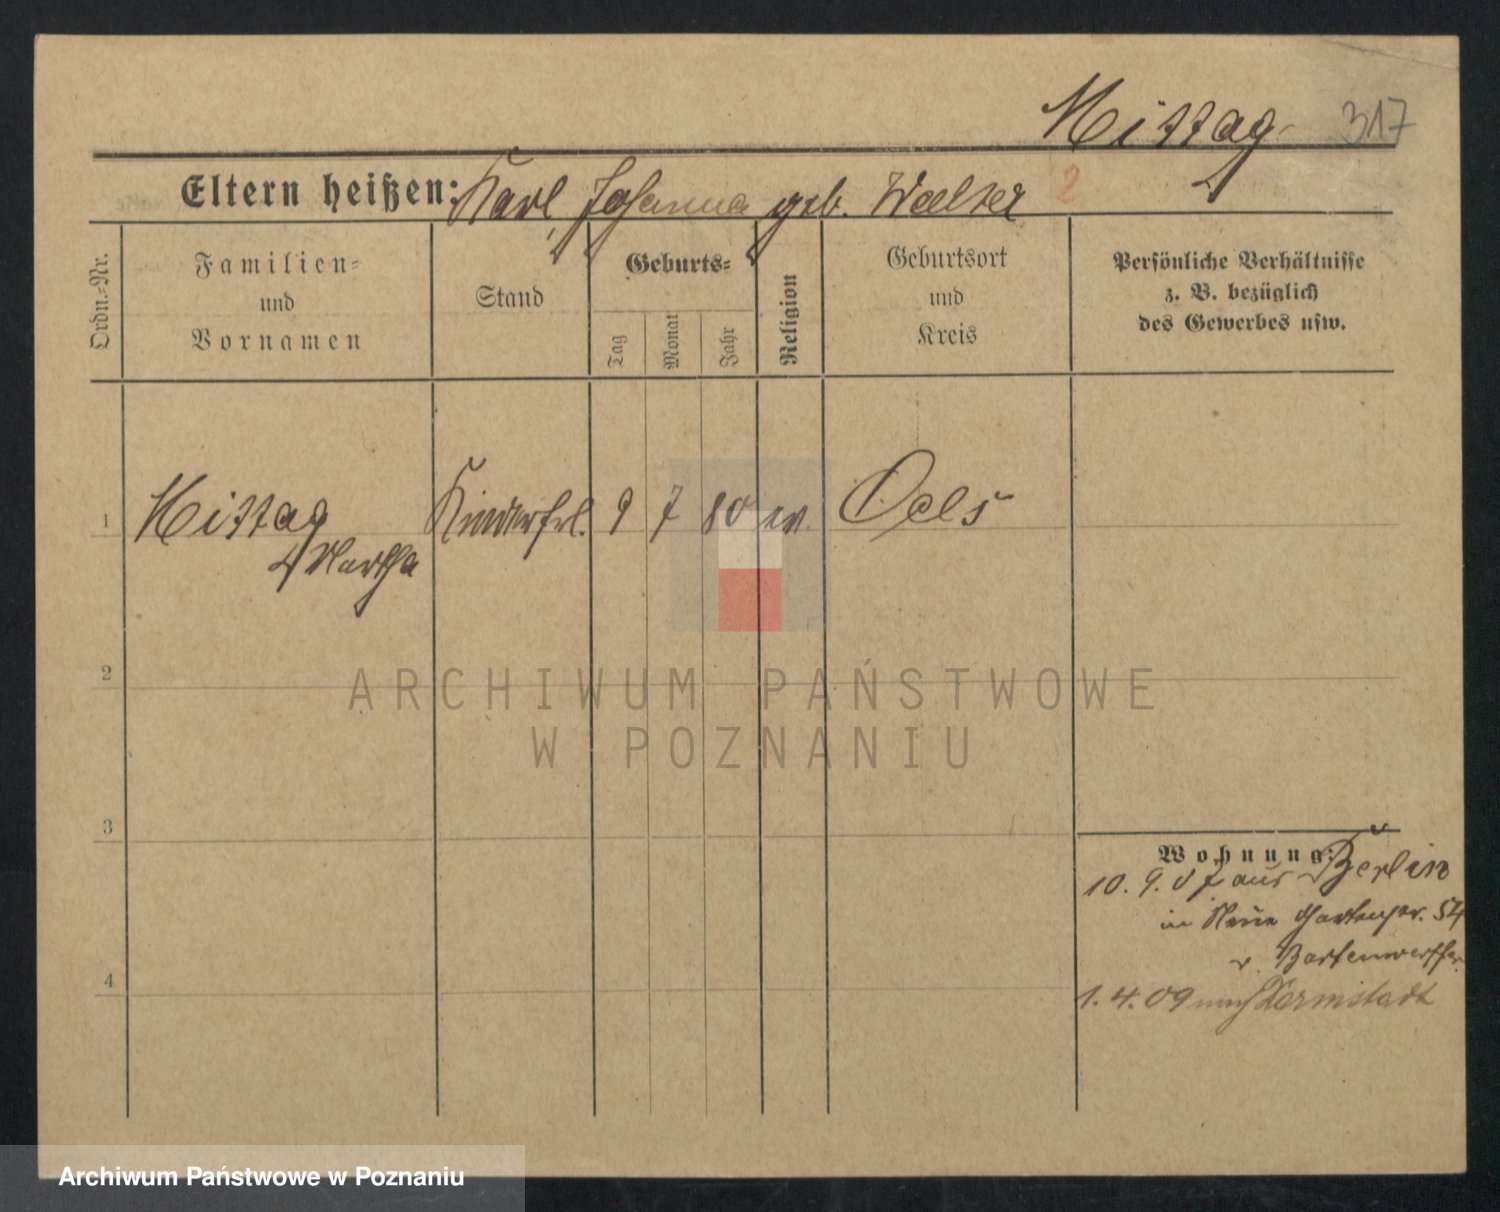 Mittag 317
Eltern heißen: Karl, Johanna geb. Walter 2
Ordn.-Nr.
Familien-
und
Vornamen
Stand
Geburts-
Tag
Monat
Jahr
Religion
Geburtsort
und
Kreis
Persönliche Verhältnisse
z. B. bezüglich
des Gewerbes usw.
1 Mittag Kinderfrl. 9 7 80 ev. Oels
Martha
2
ARCHIWUM PAŃSTWOWE
W POZNANIU
3
Wohnung:
10. 9. 07 aus Berlin
in Neue Gartenstr. 54
v.
4
1. 4. 09 nach Darmstadt
Archiwum Państwowe w Poznaniu